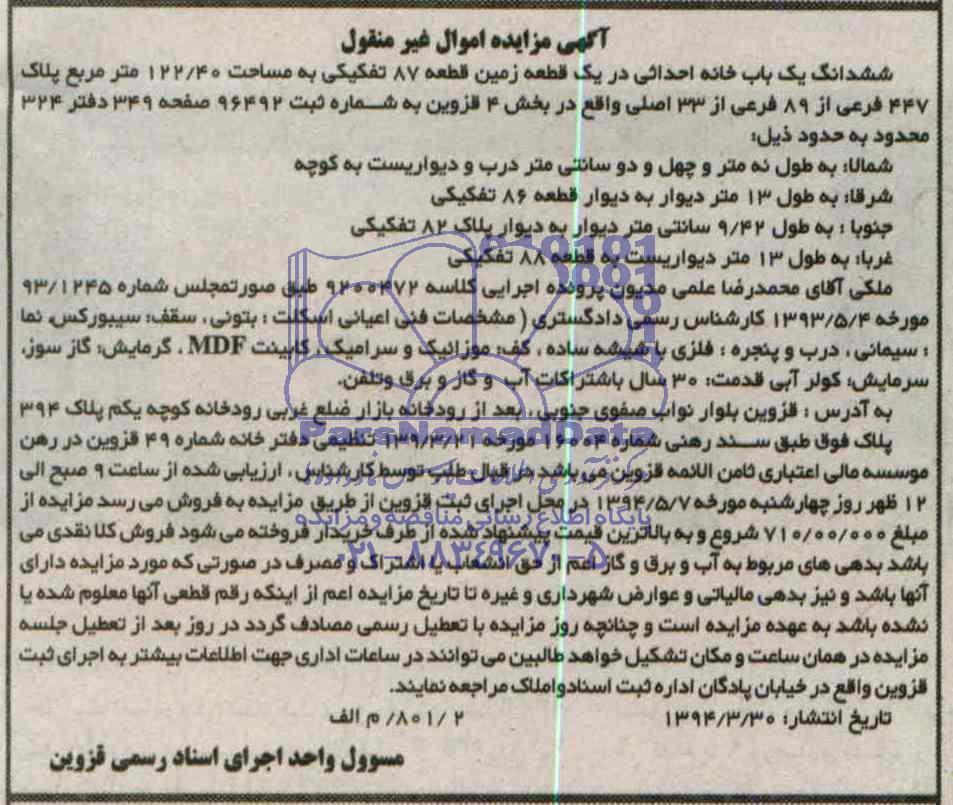 آگهی مزایده اموال غیر منقول
ششدانگ یک باب خانه احداثی در یک قطعه زمین قطعه ۸۷ تفکیکی به مساحت ۱۲۲/۴۰ متر مربع پلاک
۴۴۷ فرعی از ۸۹ فرعی از ۳۳ اصلی واقع در بخش ۴ قزوین به شماره ثبت ۹۶۴۹۲ صفحه ۳۴۹ دفتر ۳۲۴
محدود به حدود ذیل:
شمالا: به طول نه متر و چهل و دو سانتی متر درب و دیواریست به کوچه
شرقا: به طول ۱۳ متر دیوار به دیوار قطعه ۸۶ تفکیکی
جنوبا : به طول ۹/۴۲ سانتی متر دیوار به دیوار پلاک ۸۲ تفکیکی
غربا: به طول ۱۳ متر دیواریست به قطعه ۸۸ تفکیکی
ملکی آقای محمدرضا علمی مدیون پرونده اجرایی کلاسه ۹۲۰۰۴۷۲ طبق صورتمجلس شماره ۹۳/۱۲۴۵
مورخه ۱۳۹۳/۵/۴ کارشناس رسمی دادگستری ( مشخصات فنی اعیانی اسکلت : بتونی ، سقف: سیپورکس, نما
: سیمانی ، درب و پنجره : فلزی با شیشه ساده ، کف: موزائیک و سرامیک، کابینت MDF ، گرمایش: گاز سوز,
سرمایش: کولر آبی قدمت: ۳۰ سال باشتراکات آب و گاز و برق وتلفن.
به آدرس : قزوین بلوار نواب صفوی جنوبی ، بعد از رودخانه بازار ضلع غربی رودخانه کوچه یکم پلاک ۳۹۴
پلاک فوق طبق سند رهنی شماره ۱۶۰۰۴ مورخه ۱۳۹۱/۳/۲۱ تنظیمی دفتر خانه شماره ۴۹ قزوین در رهن
موسسه مالی اعتباری ثامن الائمه قزوین می باشد در قبال طلب توسط کارشناس ، ارزیابی شده از ساعت ۹ صبح الی
۱۲ ظهر روز چهارشنبه مورخه ۱۳۹۴/۵/۷ در محل اجرای ثبت قزوین از طریق مزایده به فروش می رسد مزایده از
مبلغ ۷۱۰/۰۰/۰۰۰ شروع و به بالاترین قیمت پیشنهاد شده از طرف خریدار فروخته می شود فروش کلا نقدی می
باشد بدهی های مربوط به آب و برق و گاز اعم از حق انشعاب یا اشتراک و مصرف در صورتی که مورد مزایده دارای
آنها باشد و نیز بدهی مالیاتی و عوارض شهرداری و غیره تا تاریخ مزایده اعم از اینکه رقم قطعی آنها معلوم شده یا
نشده باشد به عهده مزایده است و چنانچه روز مزایده با تعطیل رسمی مصادف گردد در روز بعد از تعطیل جلسه
مزایده در همان ساعت و مکان تشکیل خواهد طالبین می توانند در ساعات اداری جهت اطلاعات بیشتر به اجرای ثبت
قزوین واقع در خیابان پادگان اداره ثبت اسنادواملاک مراجعه نمایند.
تاریخ انتشار: ۱۳۹۴/۳/۳۰ ۲ /۸۰۱/ م الف
مسوول واحد اجرای اسناد رسمی قزوین
ParsNamadData
پایگاه اطلاع رسانی مناقصه و مزایده
۰۲۱-۸۸۳۴۹۶۷۰-۵